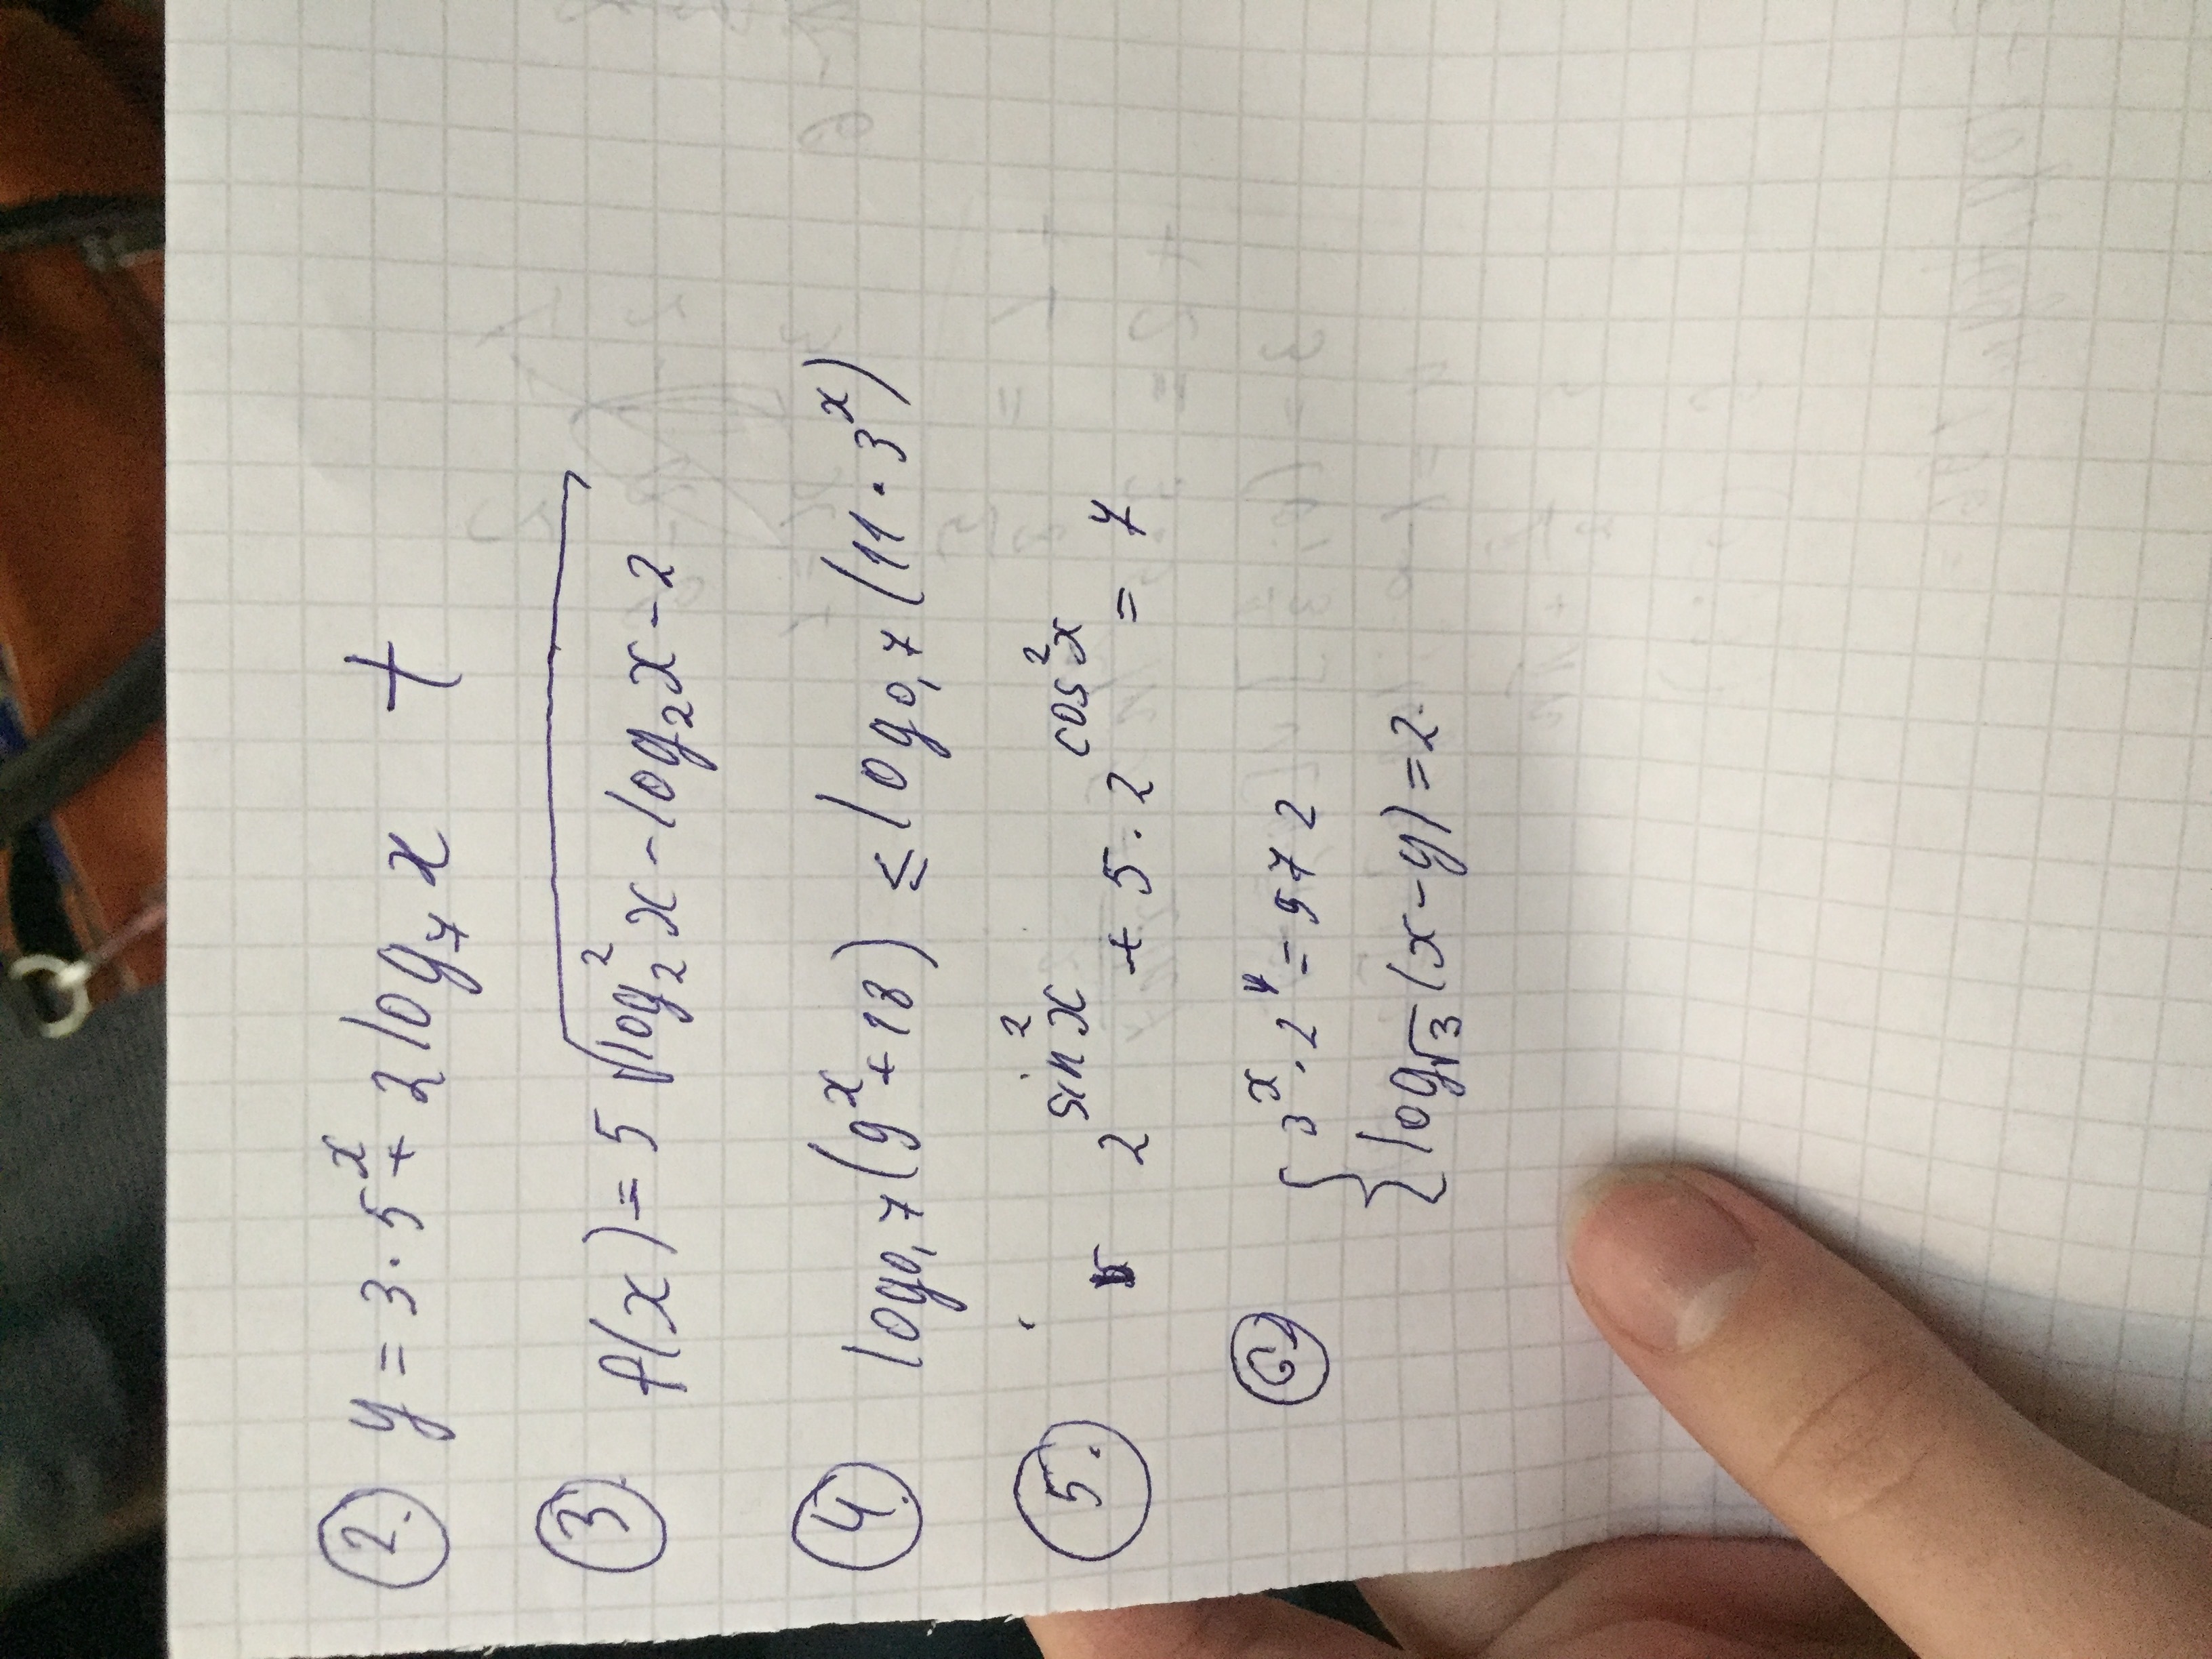 2. y = 3 · 5^x + 2 log_7 x +
3. f(x) = 5 √(log_2^2 x - log_2 x - 2)
4. log_0,7 (9^x + 18) ≤ log_0,7 (11 · 3^x)
5. 2^(sin^2 x) + 5 · 2^(cos^2 x) = 7
6 { 3^x · 2^y = 972
{ log_√3 (x - y) = 2.